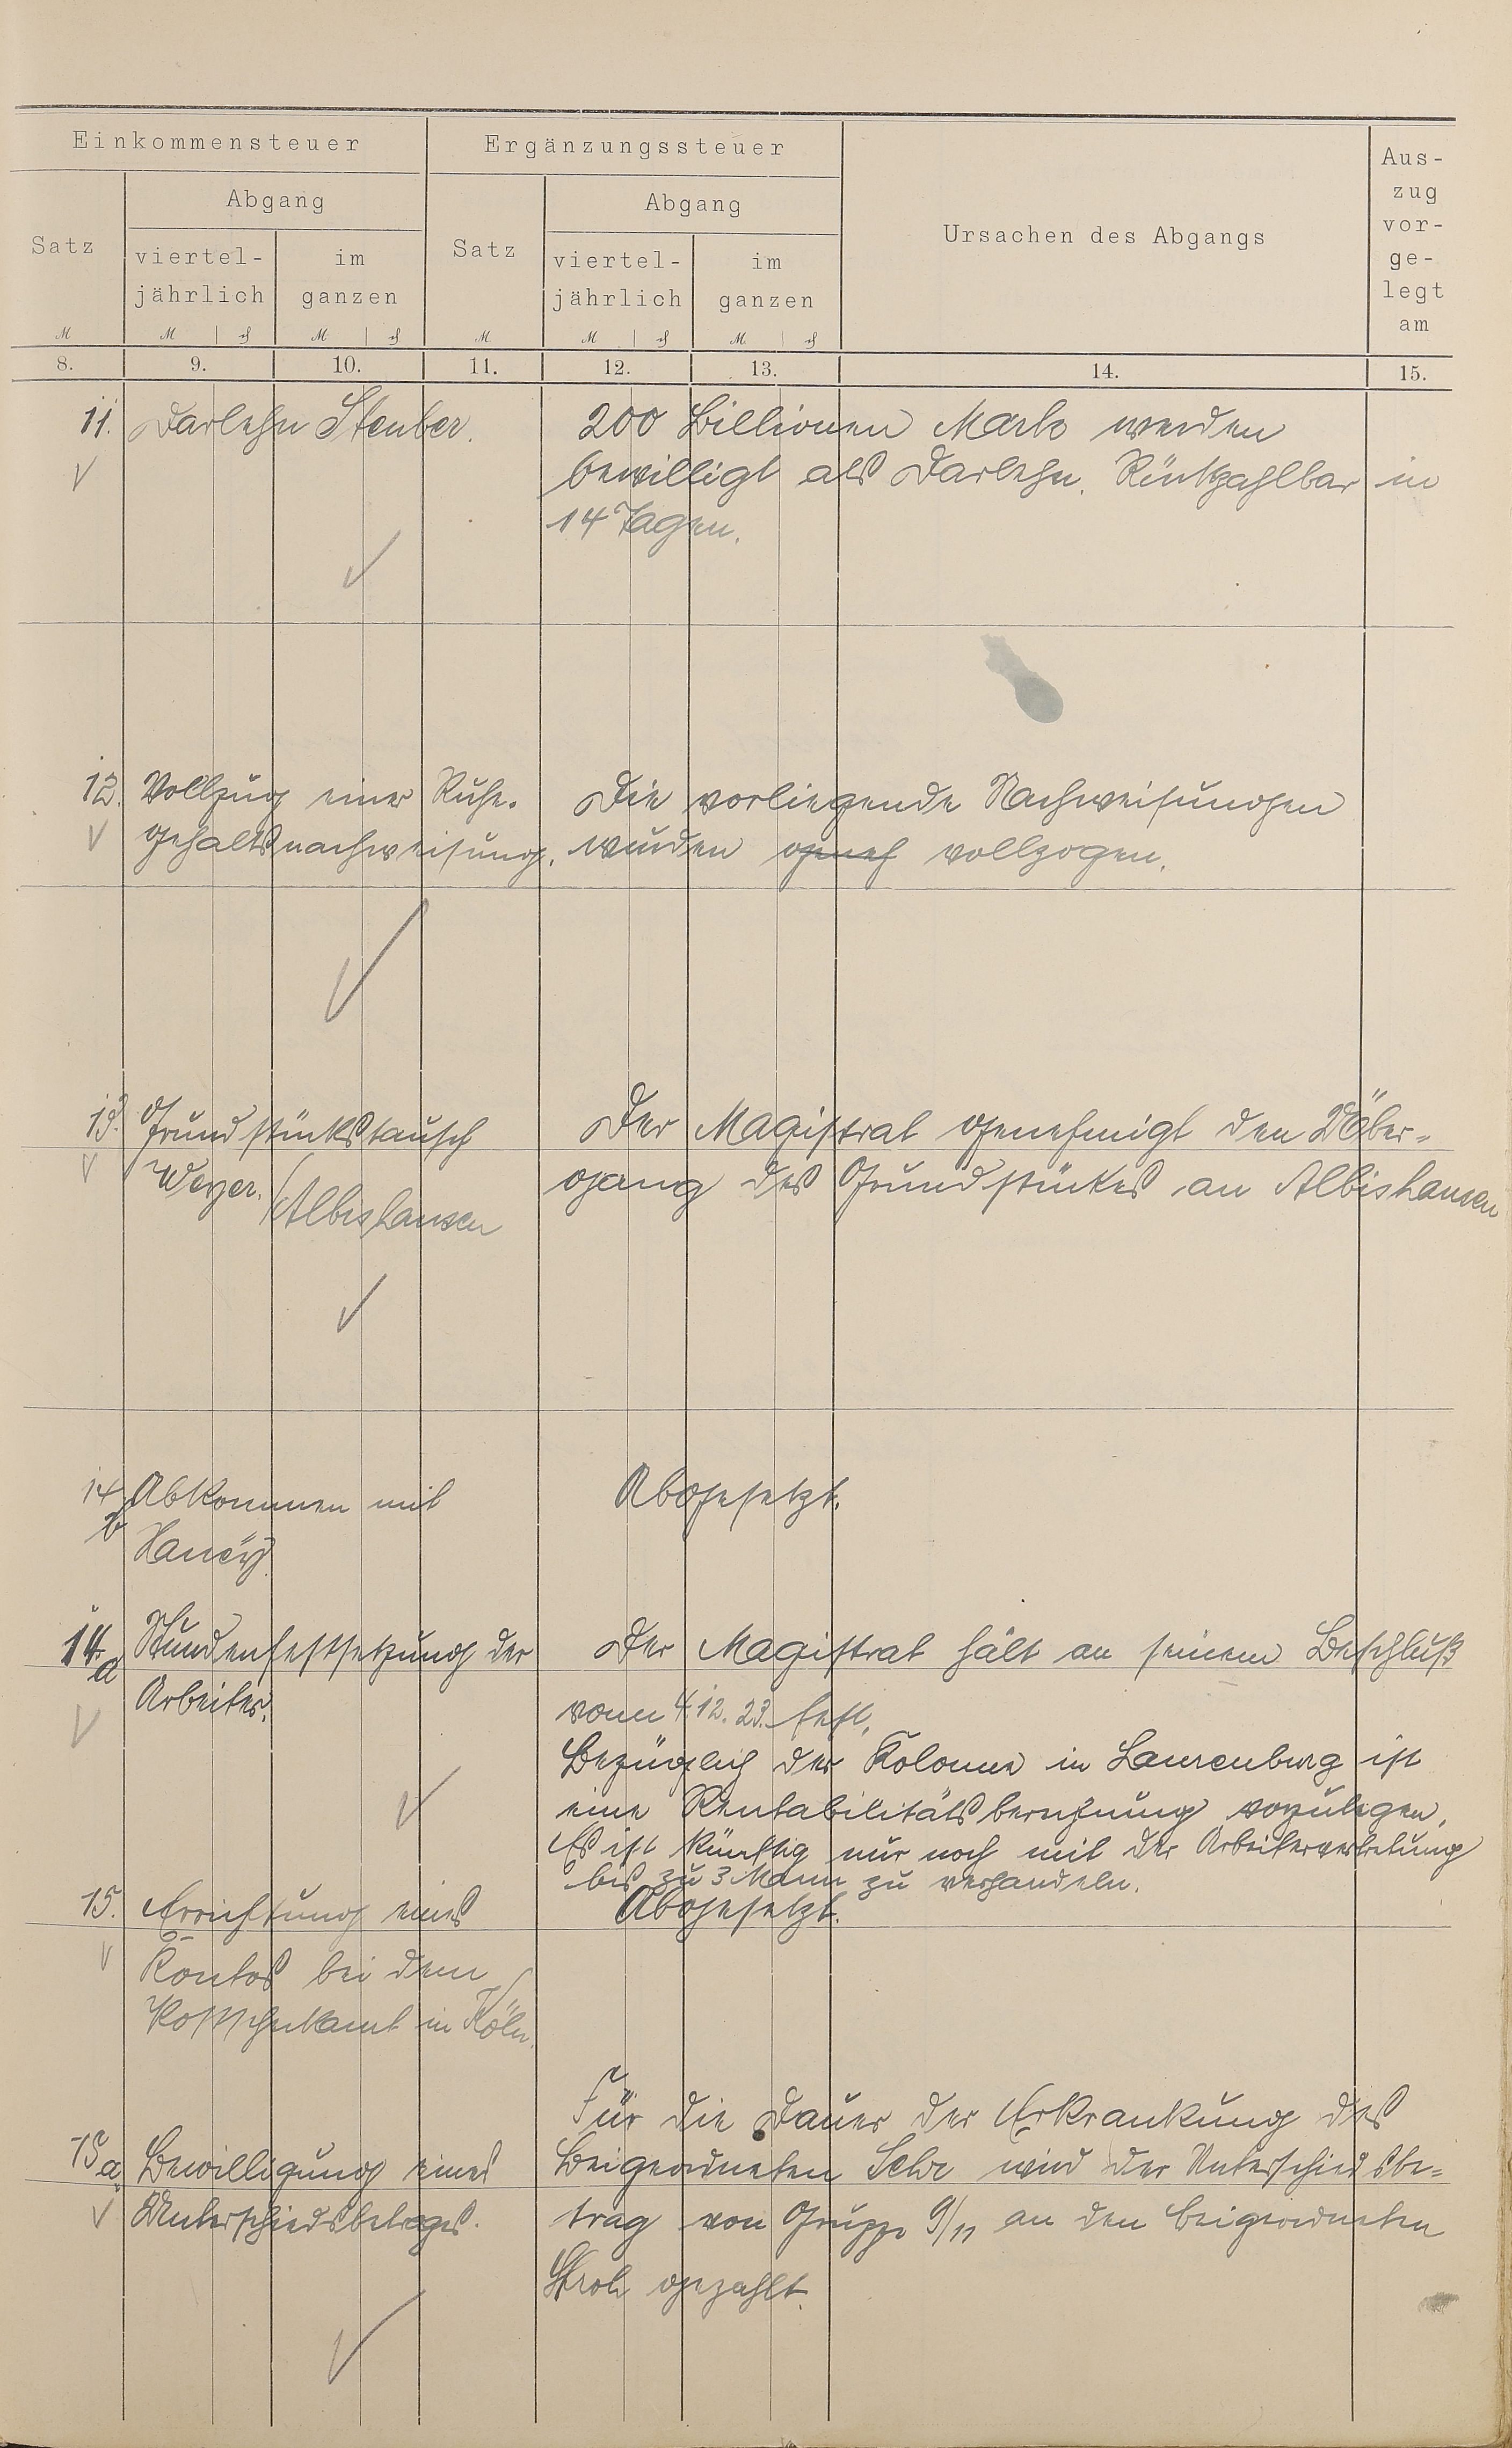 Einkommensteuer
Ergänzungssteuer
Ursachen des Abgangs
Aus-
zug
vor-
ge-
legt
am
Satz
Abgang
viertel-
jährlich
im
ganzen
Satz
Abgang
viertel-
jährlich
im
ganzen
M M ₰ M ₰ M M ₰ M ₰
8. 9. 10. 11. 12. 13. 14. 15.
11. Darlehn Steuber.
200 Billionen Mark werden
bewilligt als Darlehn. Rückzahlbar in
14 Tagen.
12. Vollzug einer Ruhe-
gehaltsnachweisung.
Die vorliegende Nachweisungen
wurden vollzogen.
13. Grundstückstausch
Weyer/Albishausen
Der Magistrat genehmigt den Über-
gang des Grundstückes an Albishausen
14 b Abkommen mit
Abgesetzt.
14 a Stundenfestsetzung der
Arbeiter.
Der Magistrat hält an seinem Beschluß
vom 4.12.23. fest.
Bezüglich der Kolonne in Laurenburg ist
eine Rentabilitätsberechnung vorzulegen.
Es ist künftig nur noch mit der Arbeitervertretung
bis zu 3 Mann zu verhandeln.
15. Errichtung eines
Kontos bei dem
Postscheckamt in Köln.
Abgesetzt.
15a Bewilligung eines
Unterschiedsbetrages.
Für die Dauer der Erkrankung des
Beigeordneten wird der Unterschiedsbe-
trag von Gruppe 9/11 an den Beigeordneten
Stroh gezahlt.